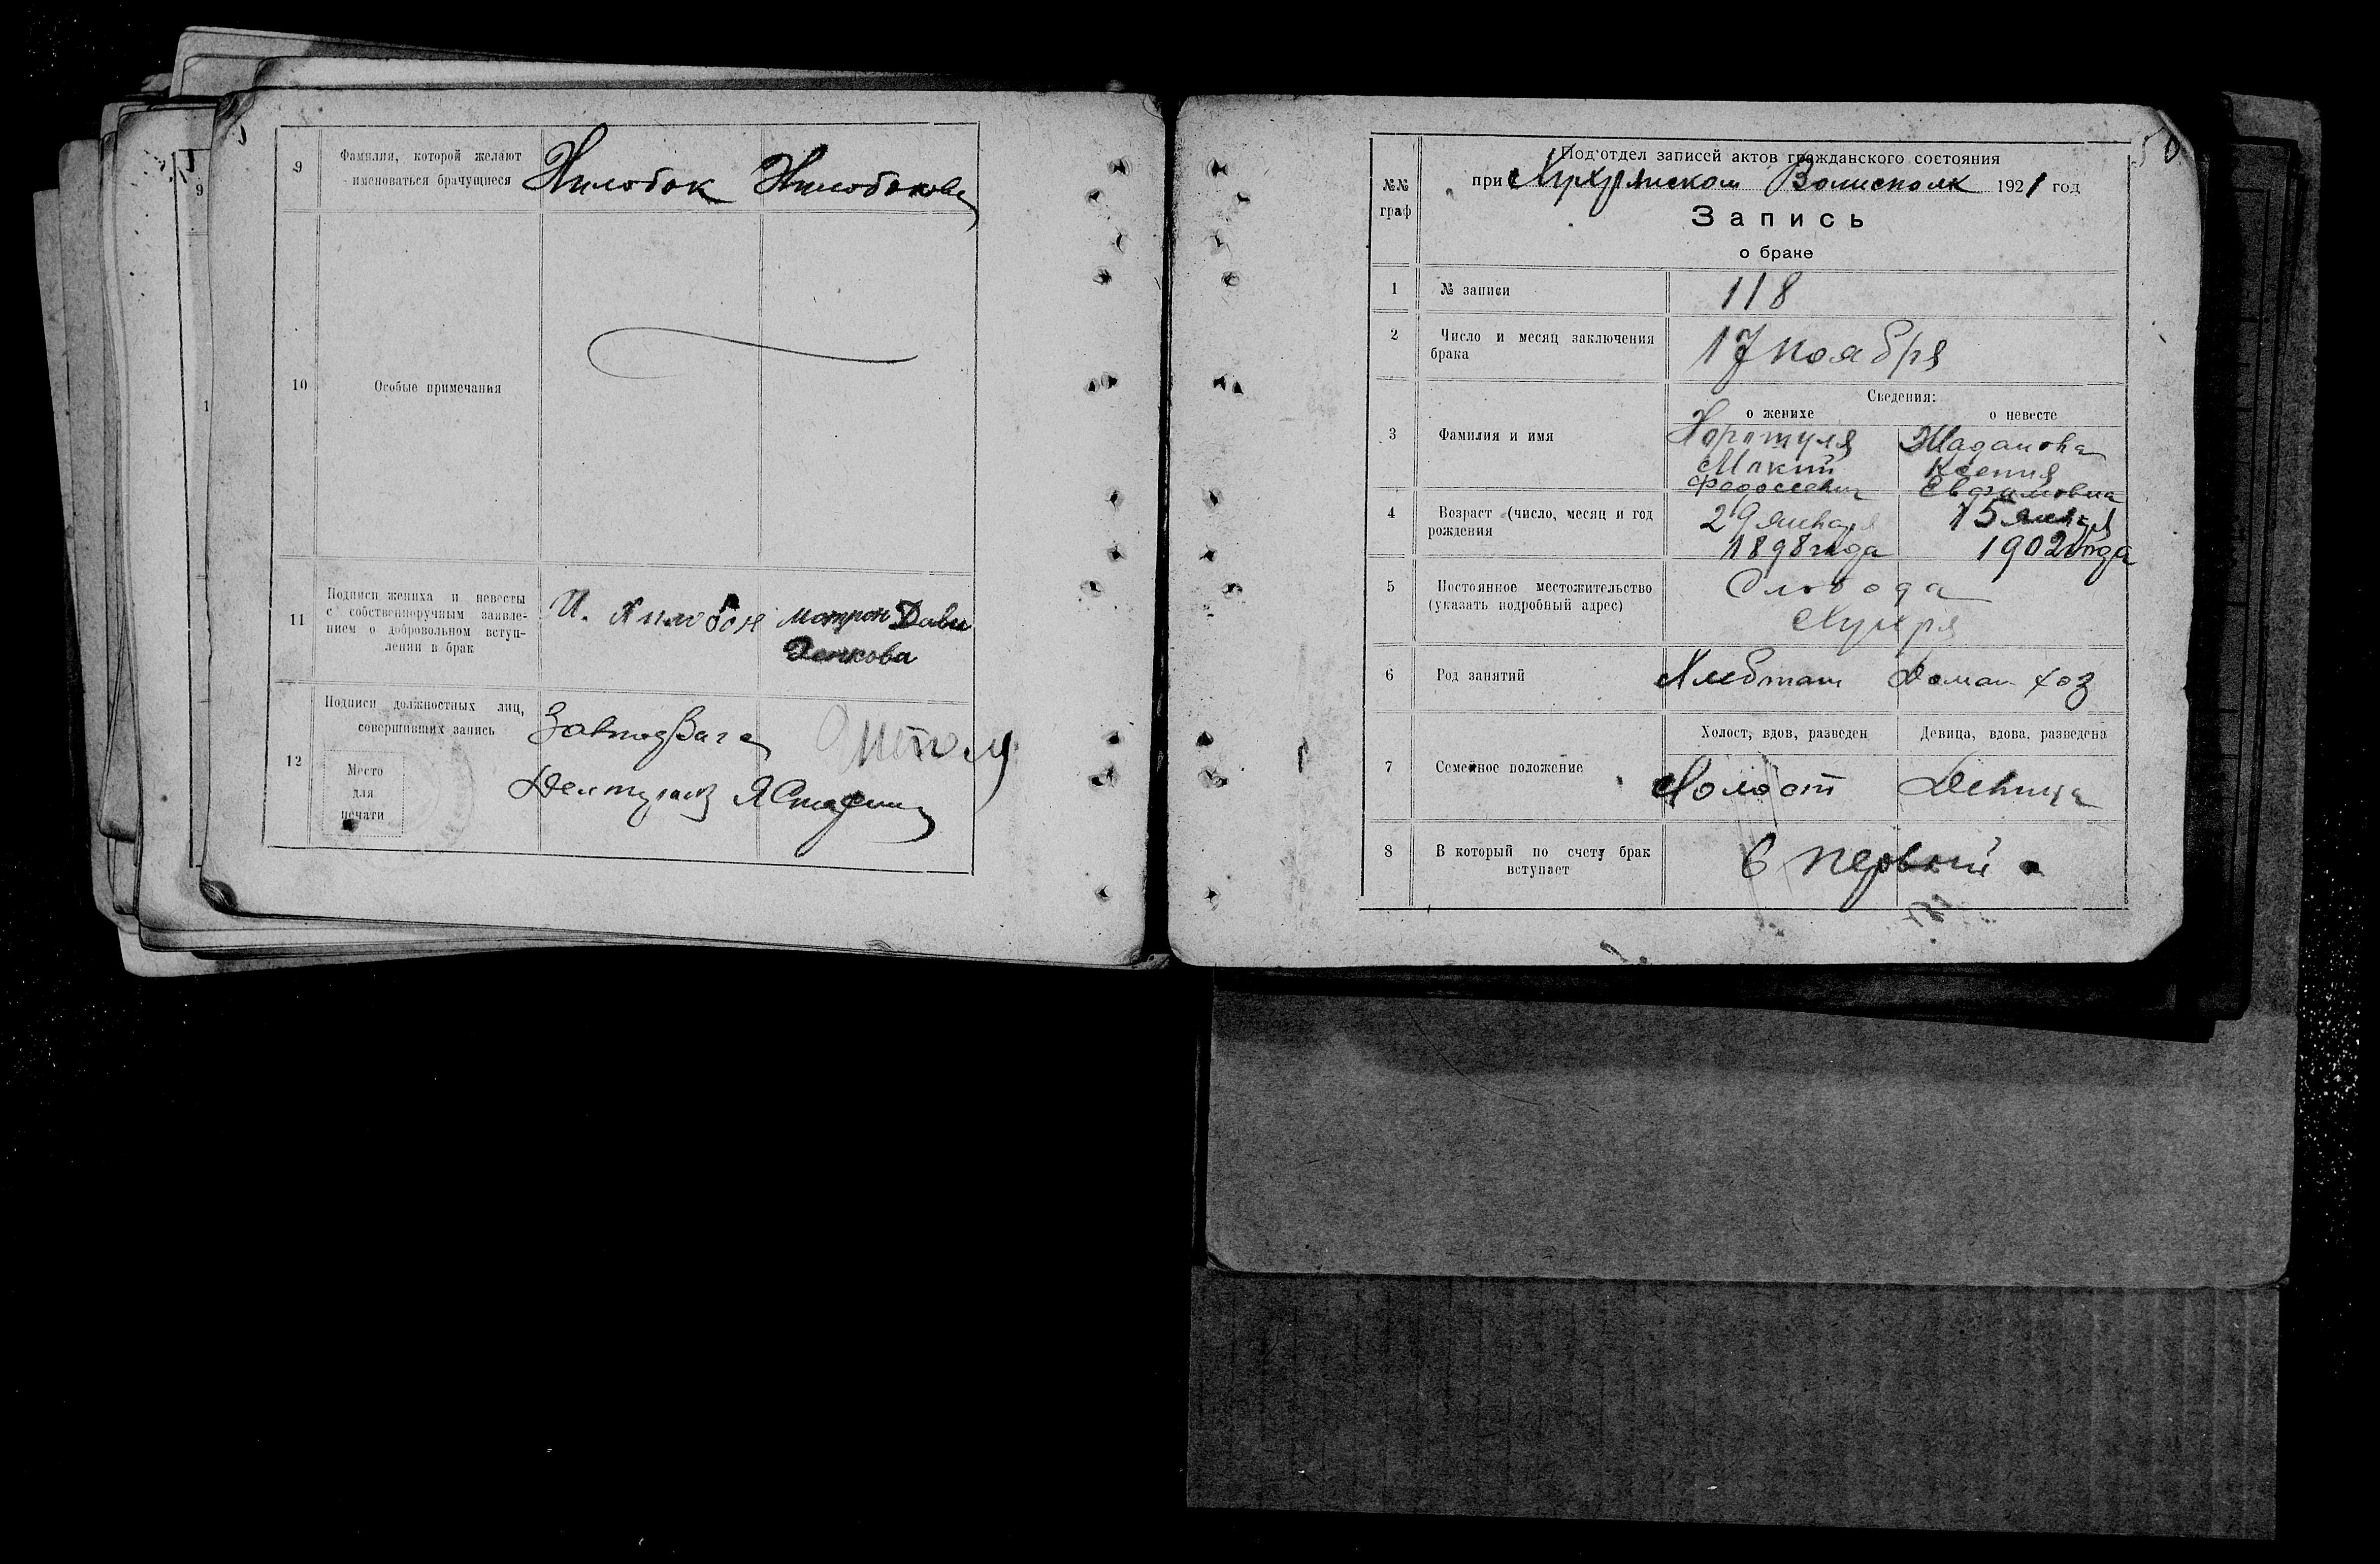 9
Фамилия, которой желают
именоваться брачущиеся
10
Особые примечания
11
Подписи жениха и невесты
с собственноручным заявле-
нием о добровольном вступ-
лении в брак
матрон Дави
Денкова
12
Подписи должностных лиц,
совершивших запись
Место
для
печати
50
№№
граф
Подотдел записей актов гражданского состояния
при 1921 год
Запись
о браке
1
№ записи
118
2
Число и месяц заключения
брака
17 ноября
Сведения:
о женихе
о невесте
3
Фамилия и имя
Мокий
Федосеевич
Жаданова
Ксения
Евфимовна
4
Возраст (число, месяц и год
рождения
29 января
1898 года
15 января
1902 года
5
Постоянное местожительство
(указать подробный адрес)
Слобода
6
Род занятий
Домаш хоз
7
Семейное положение
Холост, вдов, разведен
Девица, вдова, разведена
Холост
Девица
8
В который по счету брак
вступает
в первый